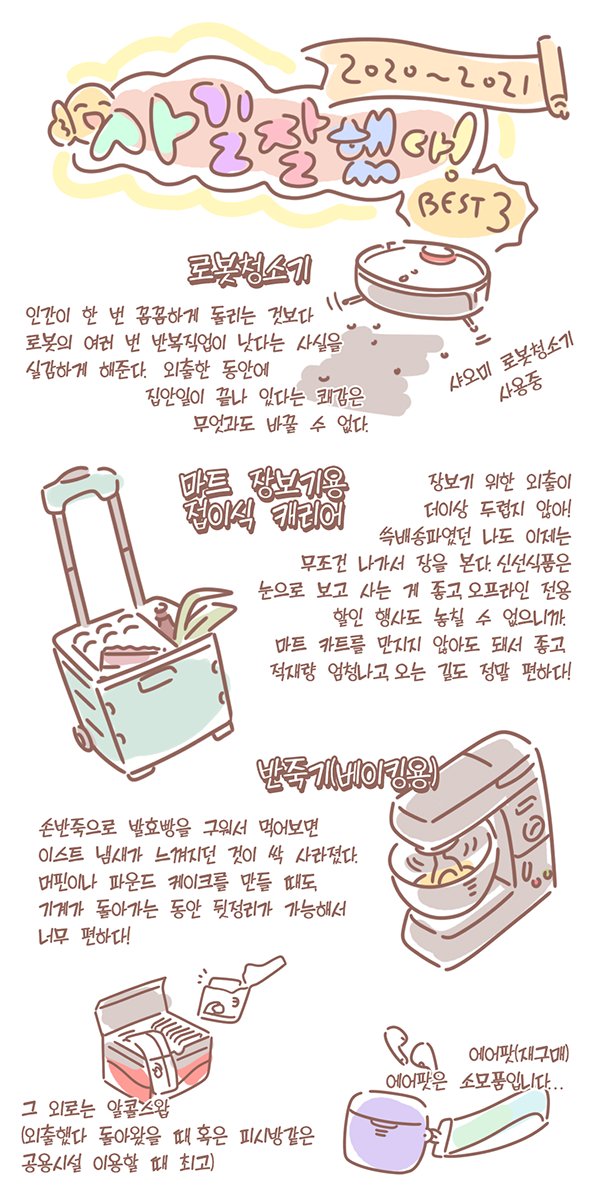 2020~2021
사길잘했템
BEST 3
로봇청소기
인간이 한 번 꼼꼼하게 돌리는 것보다
로봇의 여러 번 반복작업이 낫다는 사실을
실감하게 해준다. 외출한 동안에
집안일이 끝나 있다는 쾌감은
무엇과도 바꿀 수 없다.
샤오미 로봇청소기
사용중
마트 장보기용
접이식 캐리어
장보기 위한 외출이
더이상 두렵지 않아!
쓱배송파였던 나도 이제는
무조건 나가서 장을 본다. 신선식품은
눈으로 보고 사는 게 좋고, 오프라인 전용
할인 행사도 놓칠 수 없으니까.
마트 카트를 만지지 않아도 돼서 좋고,
적재량 엄청나고, 오는 길도 정말 편하다!
반죽기(베이킹용)
손반죽으로 발효빵을 구워서 먹어보면
이스트 냄새가 느껴지던 것이 싹 사라졌다.
머핀이나 파운드 케이크를 만들 때도,
기계가 돌아가는 동안 뒷정리가 가능해서
너무 편하다!
에어팟(재구매)
에어팟은 소모품입니다...
그 외로는 알콜스왑
(외출했다 돌아왔을 때 혹은 피시방같은
공용시설 이용할 때 최고)